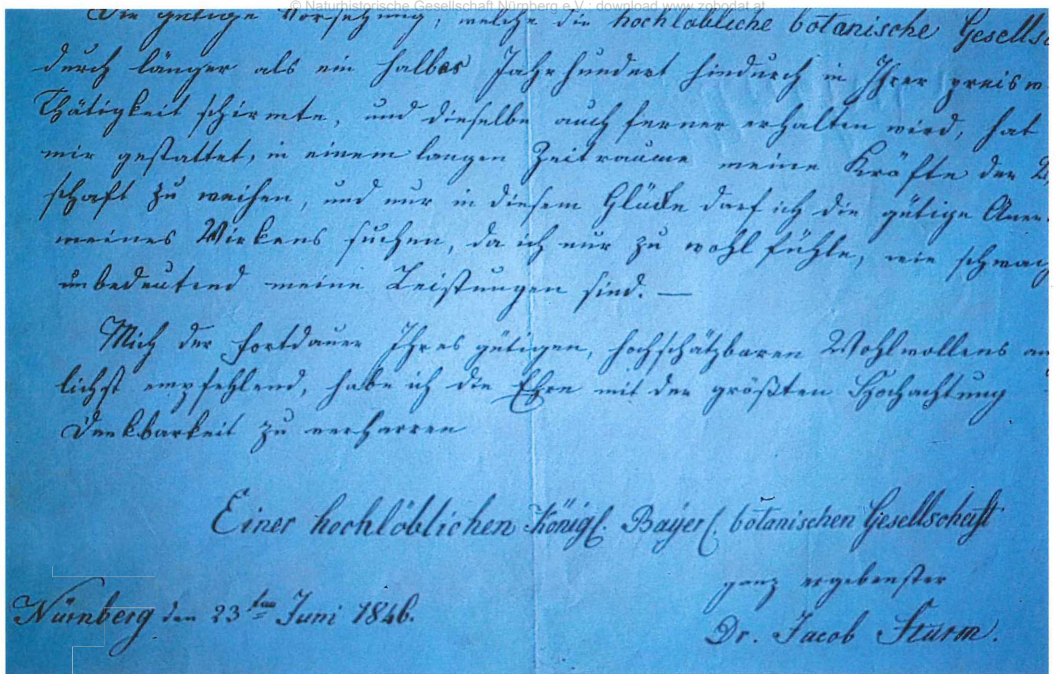 © Naturhistorische Gesellschaft Nürnberg e.V.; download www.zobodat.at
Die gütige Vorsehung, welche die hochlöbliche botanische Gesells
durch länger als ein halbes Jahrhundert hindurch in Ihrer preisw
Thätigkeit schirmte, und dieselbe auch ferner erhalten wird, hat
mir gestattet, in einem langen Zeitraume meine Kräfte der
schaft zu weihen, und nur in diesem Glücke darf ich die gütige Aner
meines Wirkens suchen, da ich nur zu wohl fühle, wie schwach
unbedeutend meine Leistungen sind. —
Mich der Fortdauer Ihres gütigen, hochschätzbaren Wohlwollens an
lichst empfehlend, habe ich die Ehre mit der größten Hochachtung
Dankbarkeit zu verharren
Einer hochlöblichen Königl. Bayer. botanischen Gesellschaft
ganz ergebenster
Nürnberg den 23ten Juni 1846.
Dr. Jacob Sturm.